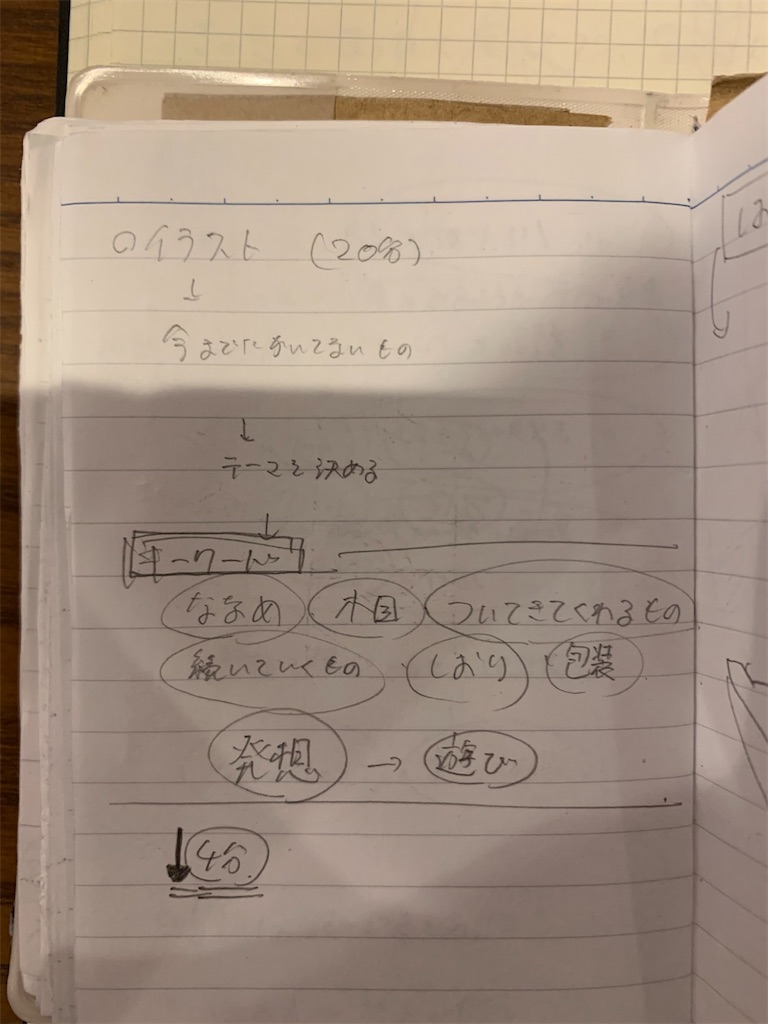 ○イラスト (20分)
↓
今までにかいてないもの
↓
テーマを決める
↓
キーワード
ななめ 木目 ついてきてくれるもの
続いていくもの ・しおり ・包装
発想 → 遊び
↓ 4分